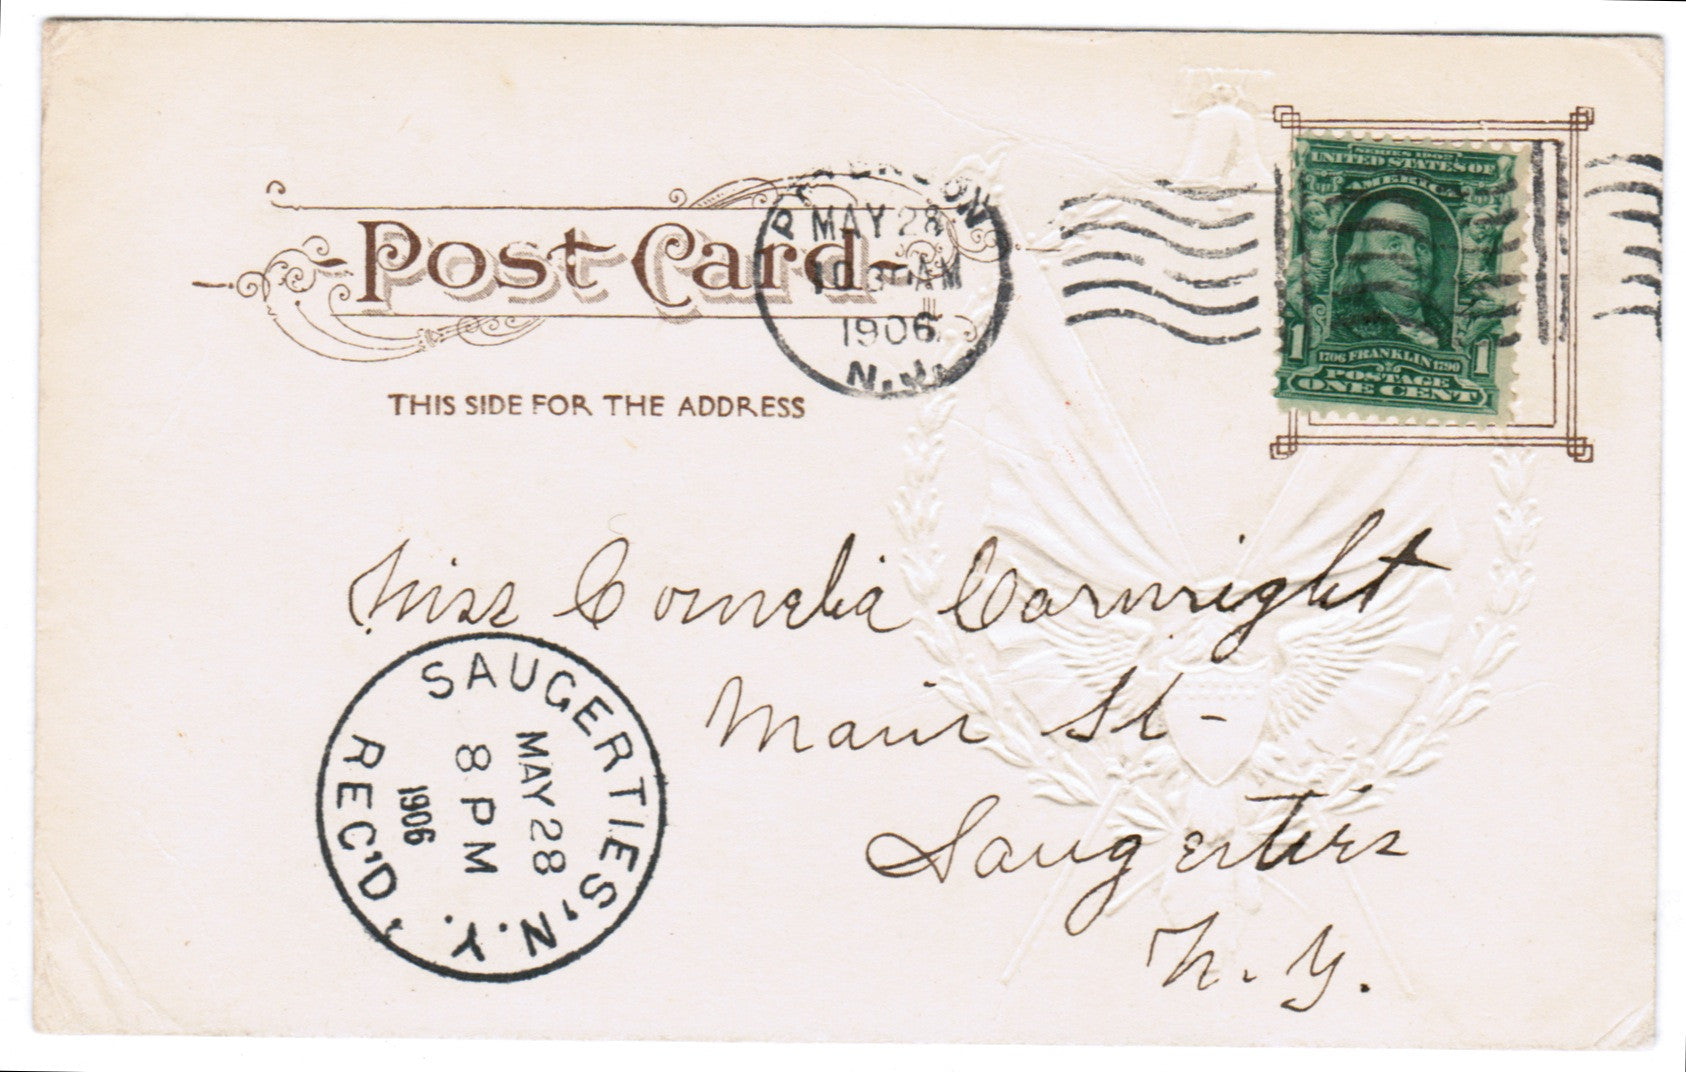 Post Card
THIS SIDE FOR THE ADDRESS
PATERSON
MAY 28
AM
1906
N.J.
SERIES 1902
UNITED STATES OF
AMERICA
1706 FRANKLIN 1790
1 1
POSTAGE
ONE CENT
Miss Cornelia Carnright
Main St -
Saugerties
N. Y.
SAUGERTIES, N.Y.
MAY 28
8 PM
1906
REC'D.